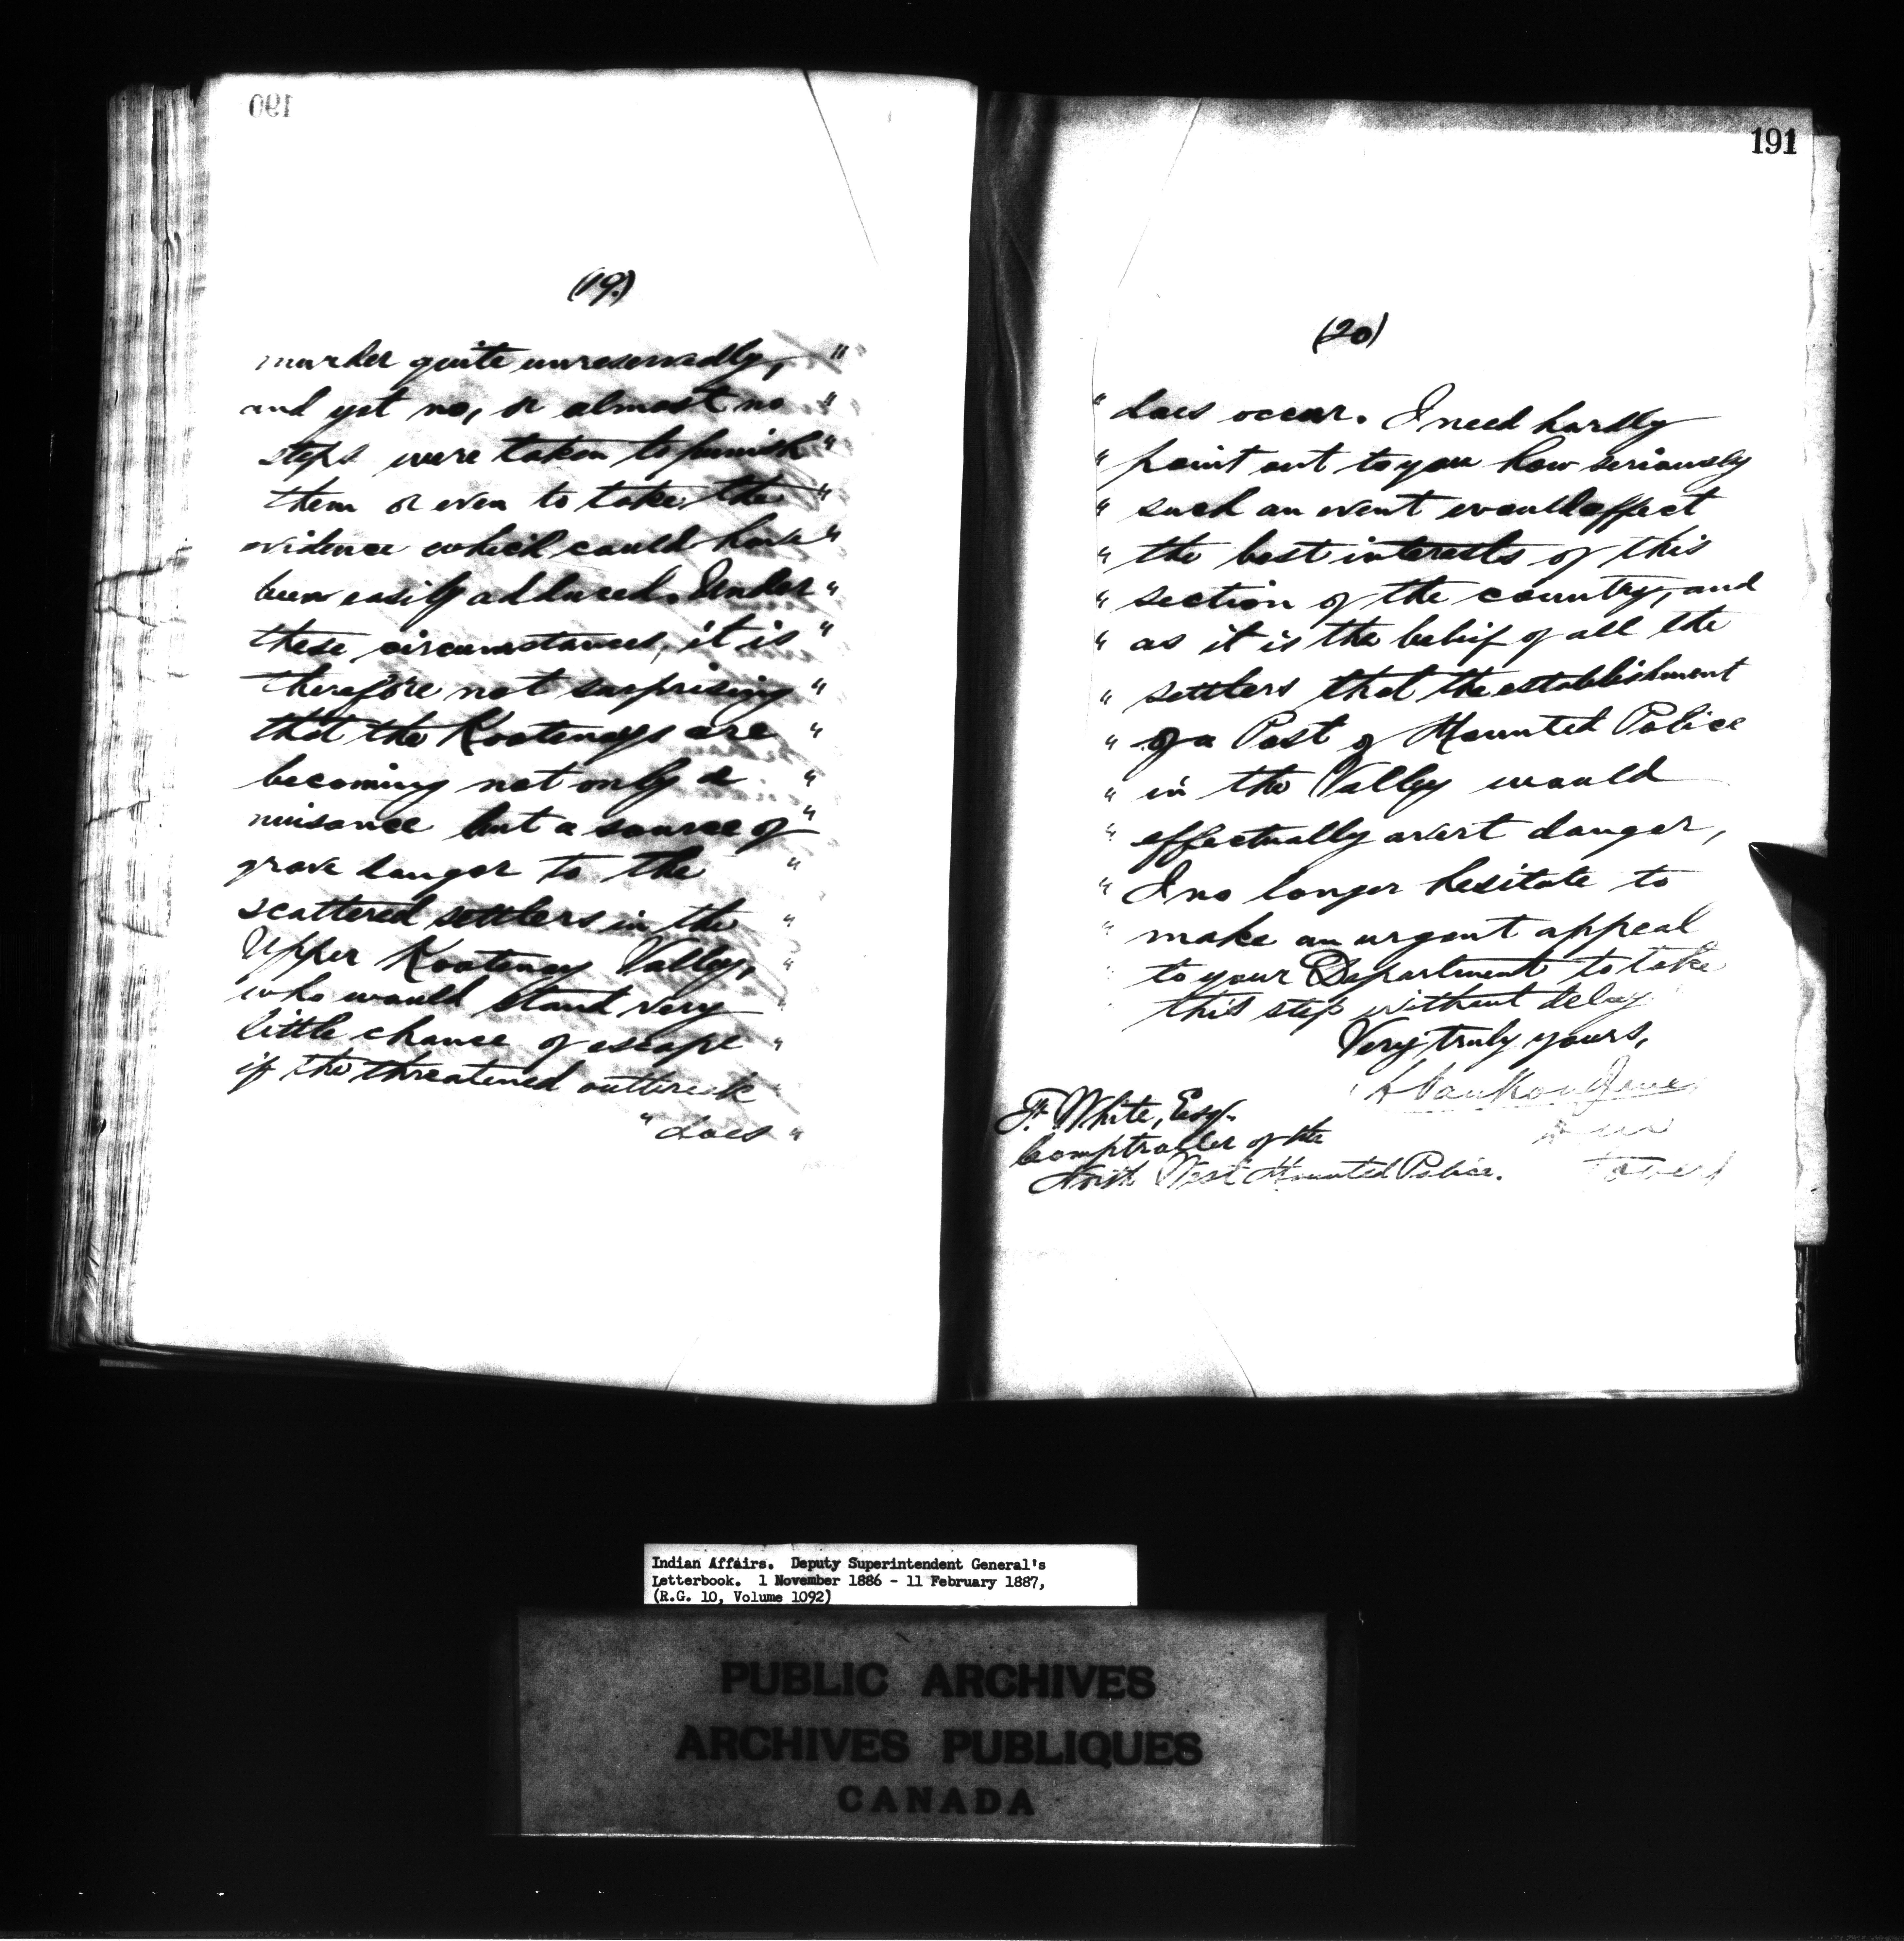 190
(19.)
murder quite unreservedly, "
and yet no, or almost no "
steps were taken to punish "
them or even to take the "
evidence which could have "
been easily adduced. Under "
these circumstances, it is "
therefore not surprising "
that the Kootenays are "
becoming not only a "
nuisance but a source of "
grave danger to the "
scattered settlers in the "
Upper Kootenay Valley, "
who would stand very "
little chance of escape "
if the threatened outbreak "
" does "
191
(20)
" does occur. I need hardly
" point out to you how seriously
" such an event would affect
" the best interests of this
" section of the country, and
" as it is the belief of all the
" settlers that the establishment
" of a Post of Mounted Police
" in the Valley would
" effectually avert danger,
" I no longer hesitate to
" make an urgent appeal
to your Department to take
this step without delay
Very truly yours,
L VanKoughnet
F. White, Esq.
Comptroller of the
North West Mounted Police.
Indian Affairs. Deputy Superintendent General's
Letterbook. 1 November 1886 - 11 February 1887,
(R.G. 10, Volume 1092)
PUBLIC ARCHIVES
ARCHIVES PUBLIQUES
CANADA